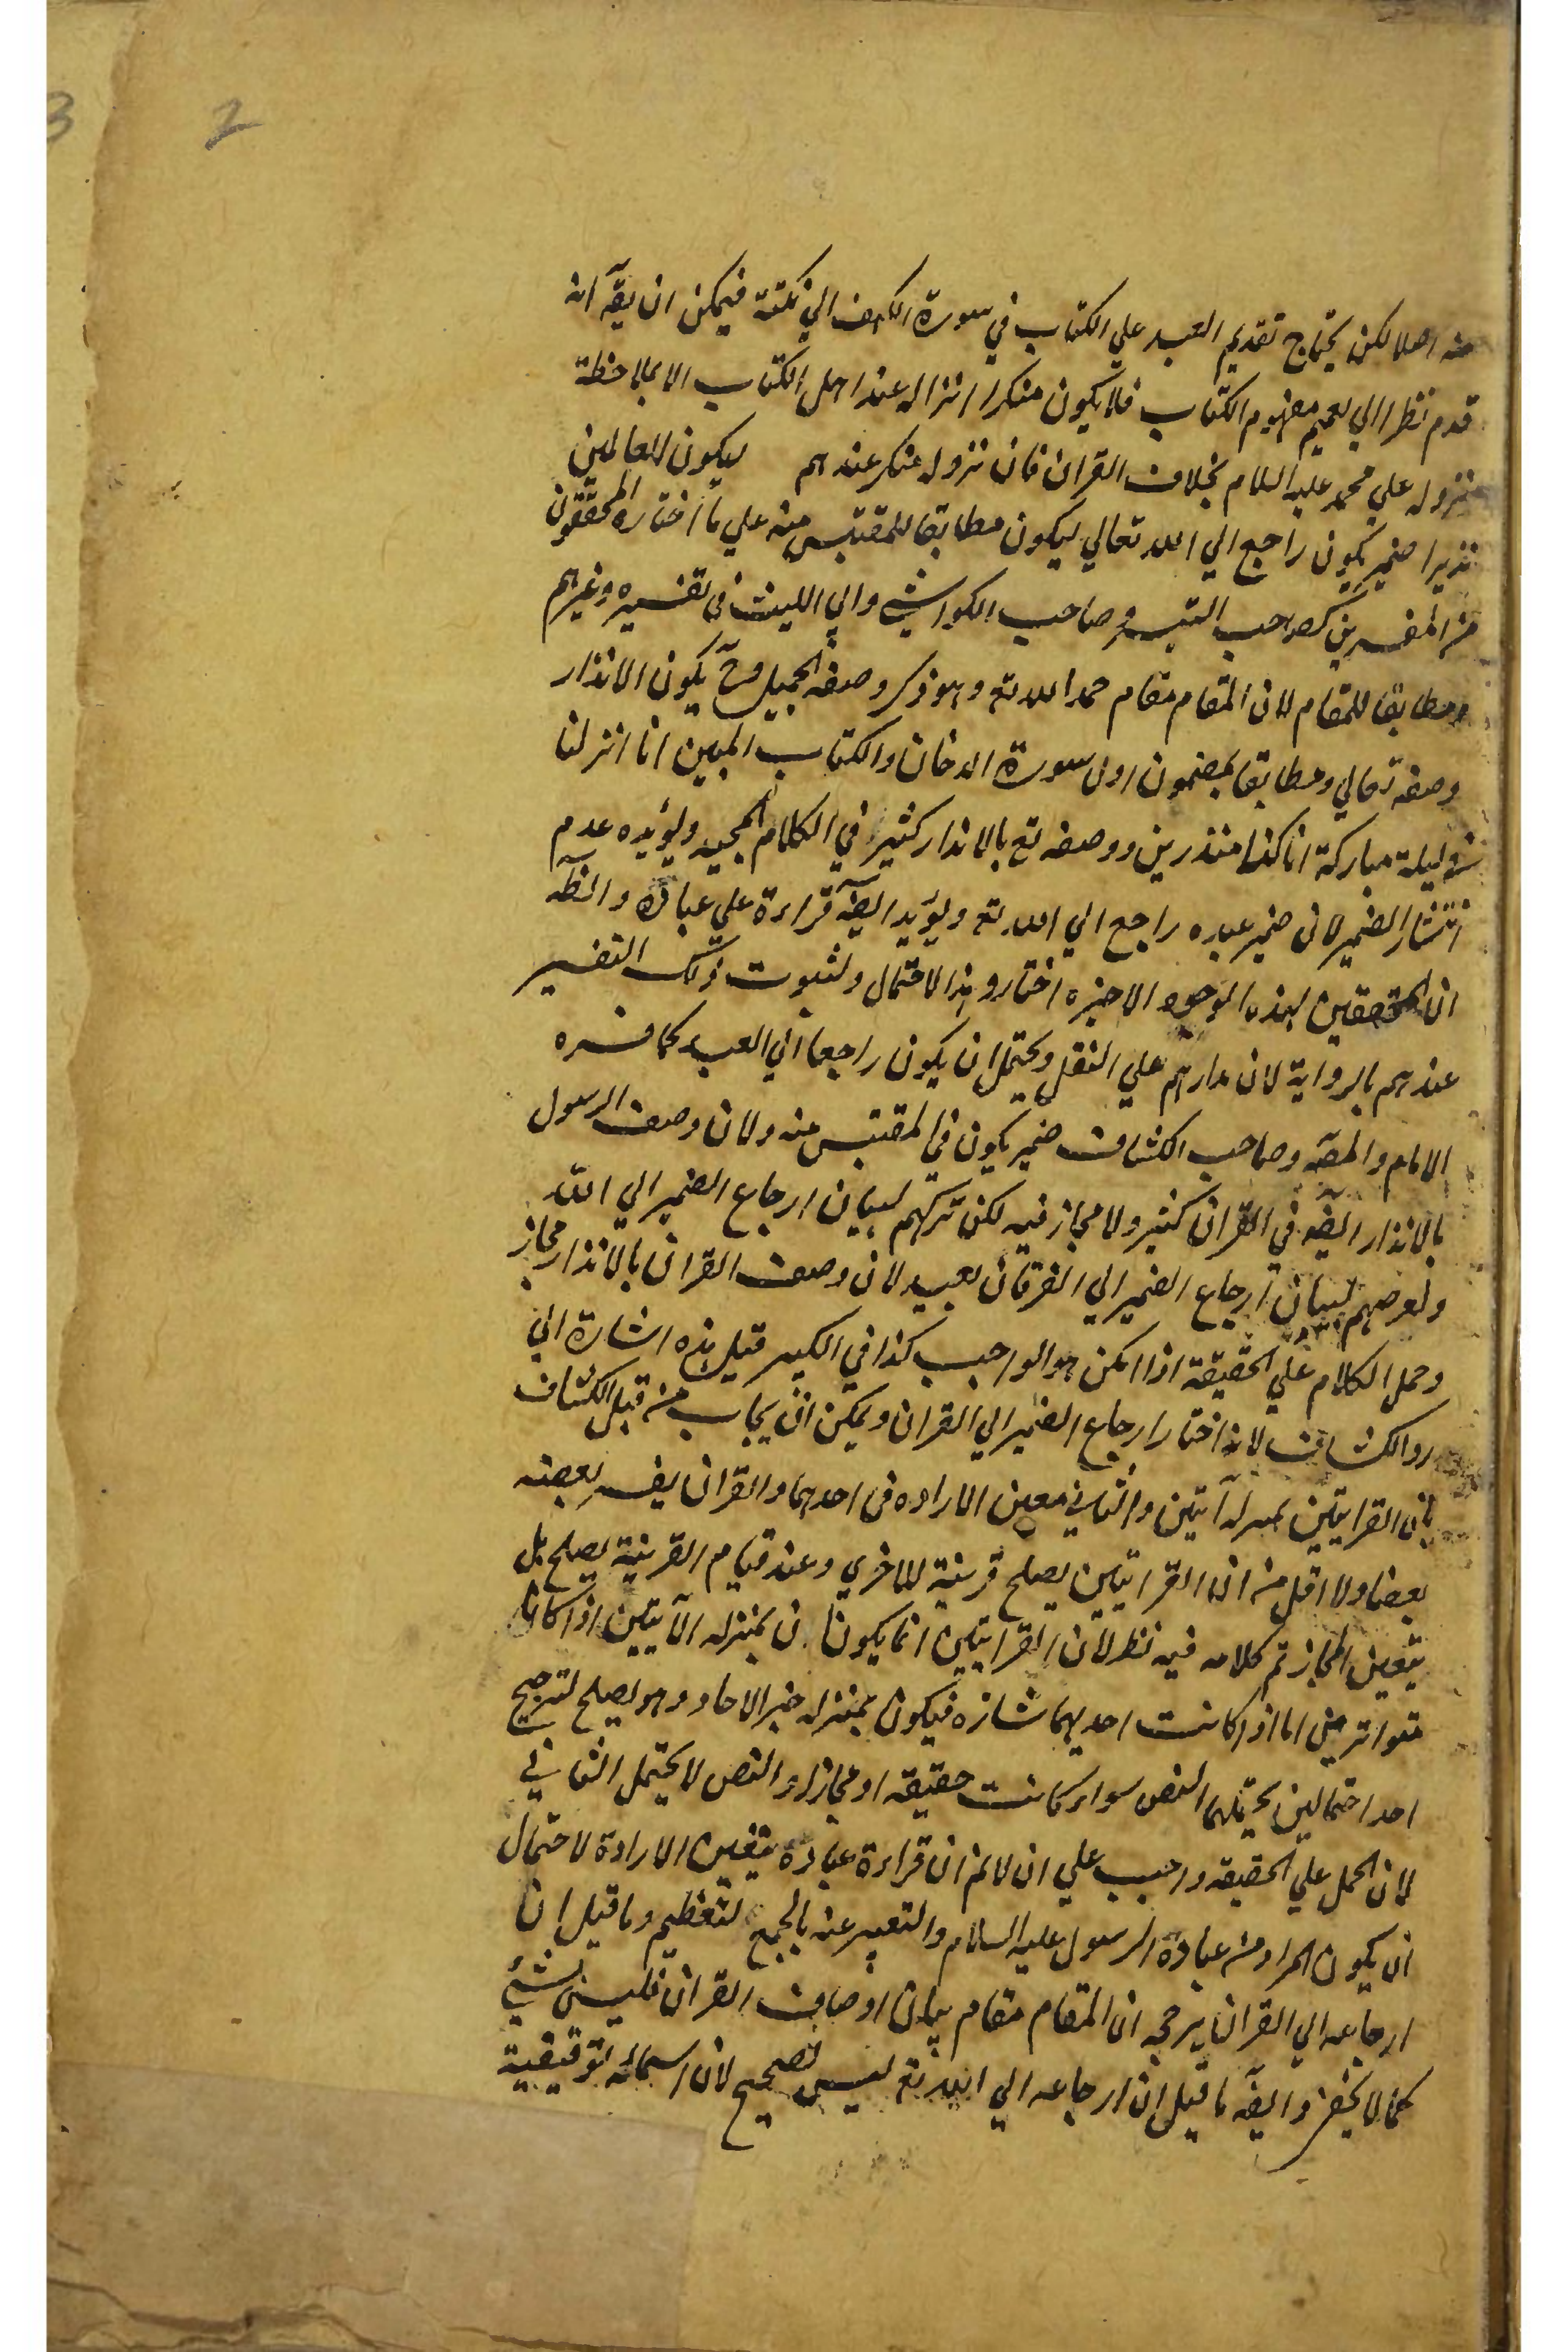 2
3
منه اصلا لكن يحتاج تقديم العبد علي الكتاب في سورة الكهف الي نكتة فيمكن ان يقآ انه
قدم نظرا الي تعميم مفهوم الكتاب فلا يكون منكرا انزاله عند اهل الكتاب الا بملاحظة
نزوله علي محمد عليه السلام بخلاف القران فان نزوله منكر عندهم ليكون للعالمين
نذيرا ضمير يكون راجع الي الله تعالي ليكون مطابقا للمقتبس منه علي ما اختاره المحققون
من المفسرين كصاحب التيسير وصاحب الكواشي وابي الليث في تفسيره وغيرهم
ومطابقا للمقام لان المقام مقام حمد الله تع وهو ذكر وصفه الجميل وحٓ يكون الانذار
وصفه تعالي ومطابقا لمضمون اول سورة الدخان والكتاب المبين انا انزلناه
في ليلة مباركة انا كنا منذرين ووصفه تع بالانذار كثير في الكلام المجيد ويؤيده عدم
انتشار الضمير لان ضمير عبده راجع الي الله تع ويؤيد ايضآ قراءة علي عباده والظآ
ان المحققين لهذه الوجوه الاخيرة اختاروا هذا الاحتمال ولثبوت ذلك التفسير
عندهم بالرواية لان مدارهم علي النقل ويحتمل ان يكون راجعا الي العبد كما فسره
الامام والمصآ وصاحب الكشاف ضمير يكون في المقتبس منه ولان وصف الرسول
بالانذار ايضآ في القران كثير ولا مجاز فيه لكن تركهم لبيان ارجاع الضمير الي الله
وتعرضهم لبيان ارجاع الضمير الي الفرقان بعيد لان وصف القران بالانذار مجاز
وحمل الكلام علي الحقيقة اذا امكن هو الواجب كذا في الكبير قيل هذه اشارة الي
رد الكشاف لانه اختار ارجاع الضمير الي القران ويمكن ان يجاب من قبل الكشاف
بان القرايتين بمنزلة آيتين والثاني معين الارادة في احدهما والقران يفسر بعضه
بعضا ولا اقل من ان القرايتين يصلح قرينة للاخري وعند قيام القرينة يصلح بل
يتعين المجاز تم كلامه فيه نظر لان القرايتين انما يكونان بمنزلة الآيتين اذا كانتا
متواترتين اما اذا كانت احديهما شاذه فيكون بمنزلة خبر الاحاد وهو يصلح لترجيح
احد احتمالين يحتملهما النص سواء كانت حقيقه او مجازا والنص لا يحتمل الثاني
لان الحمل علي الحقيقه واجب علي ان لا نم ان قراءة عباده يتعين الارادة لاحتمال
ان يكون المراد من عباده الرسول عليه السلام والتعبير عنه بالجمع لتعظيم وما قيل ان
ارجاعه الي القران يرجحه ان المقام مقام بيان اوصاف القران فليس بشئ
كما لا يخفي وايضآ ما قيل ان ارجاعه الي الله تع ليس بصحيح لان اسمائه توقيفية